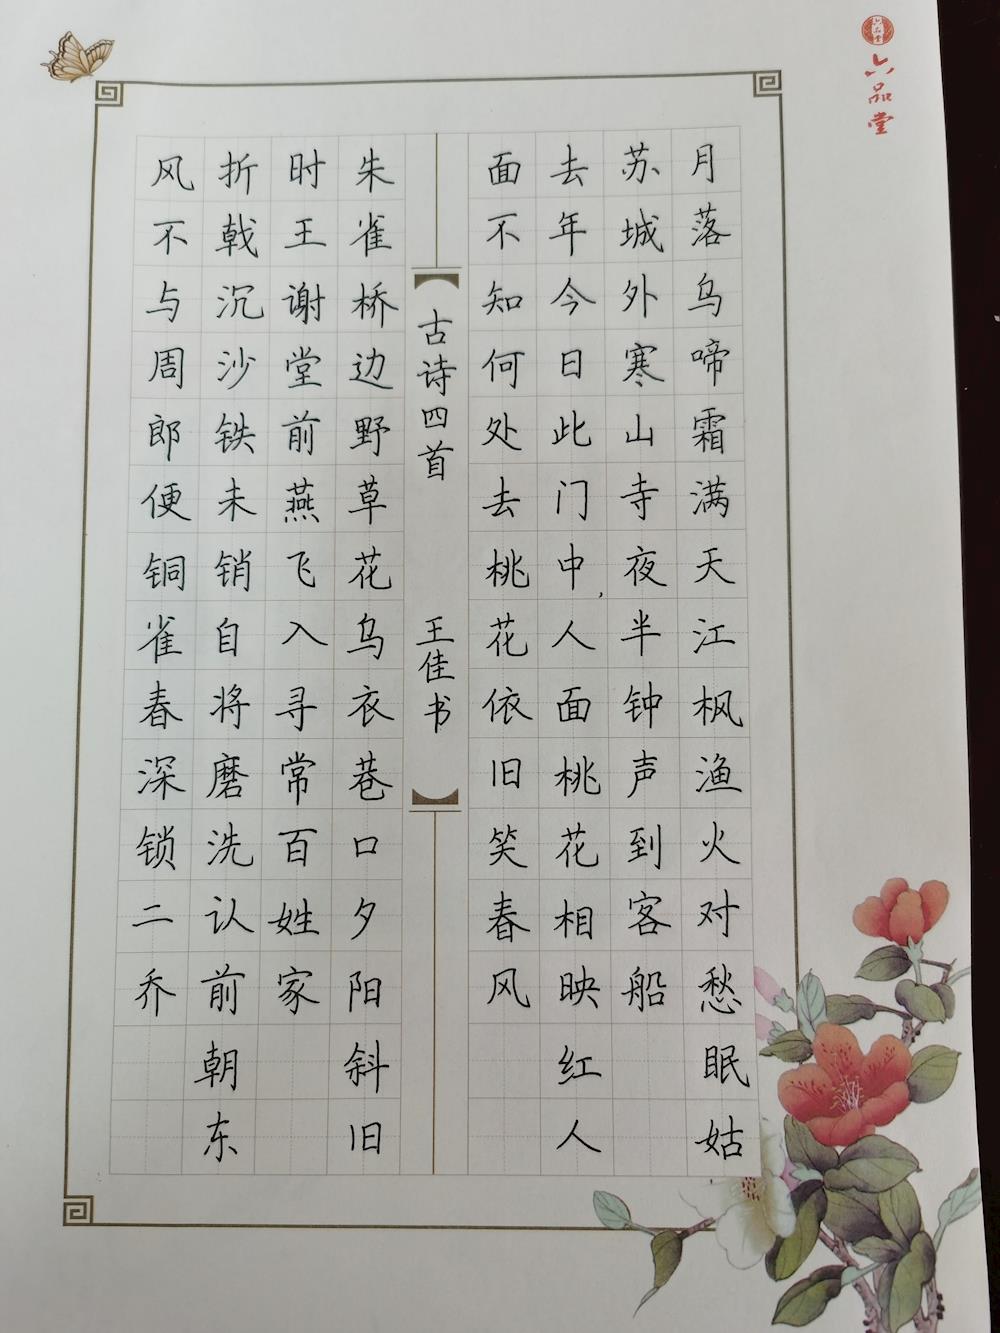 六品堂
月落乌啼霜满天江枫渔火对愁眠姑
苏城外寒山寺夜半钟声到客船
去年今日此门中,人面桃花相映红人
面不知何处去桃花依旧笑春风
古诗四首 王佳书
朱雀桥边野草花乌衣巷口夕阳斜旧
时王谢堂前燕飞入寻常百姓家
折戟沉沙铁未销自将磨洗认前朝东
风不与周郎便铜雀春深锁二乔